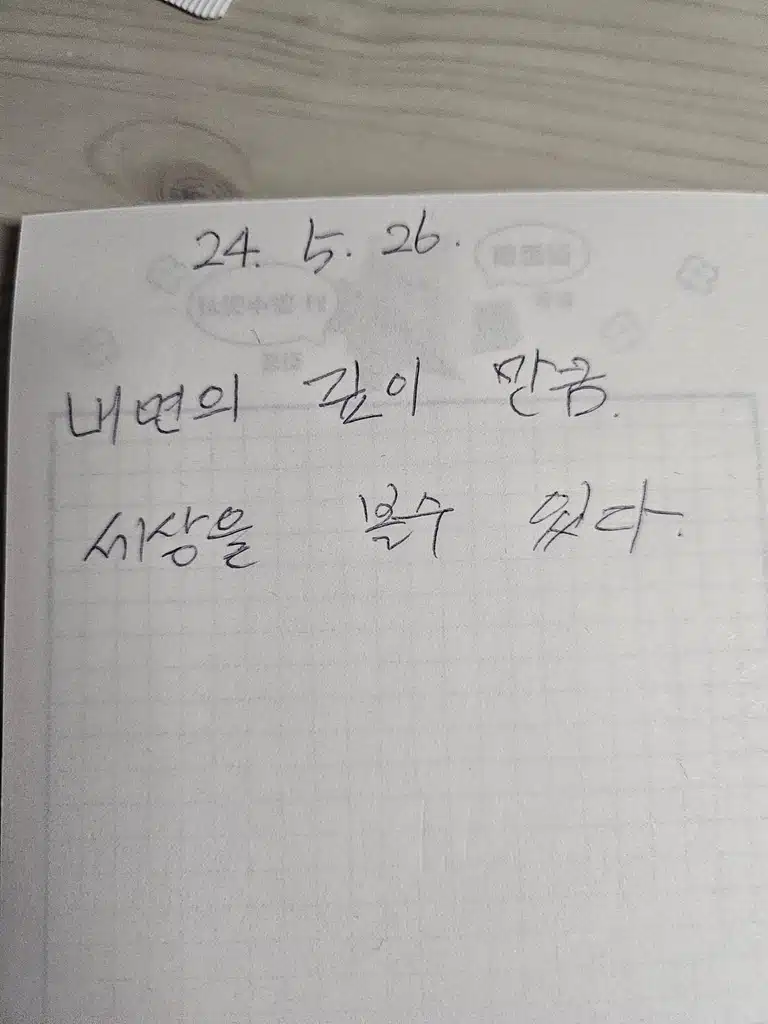 24. 5. 26.
내면의 깊이 만큼.
세상을 볼수 있다.